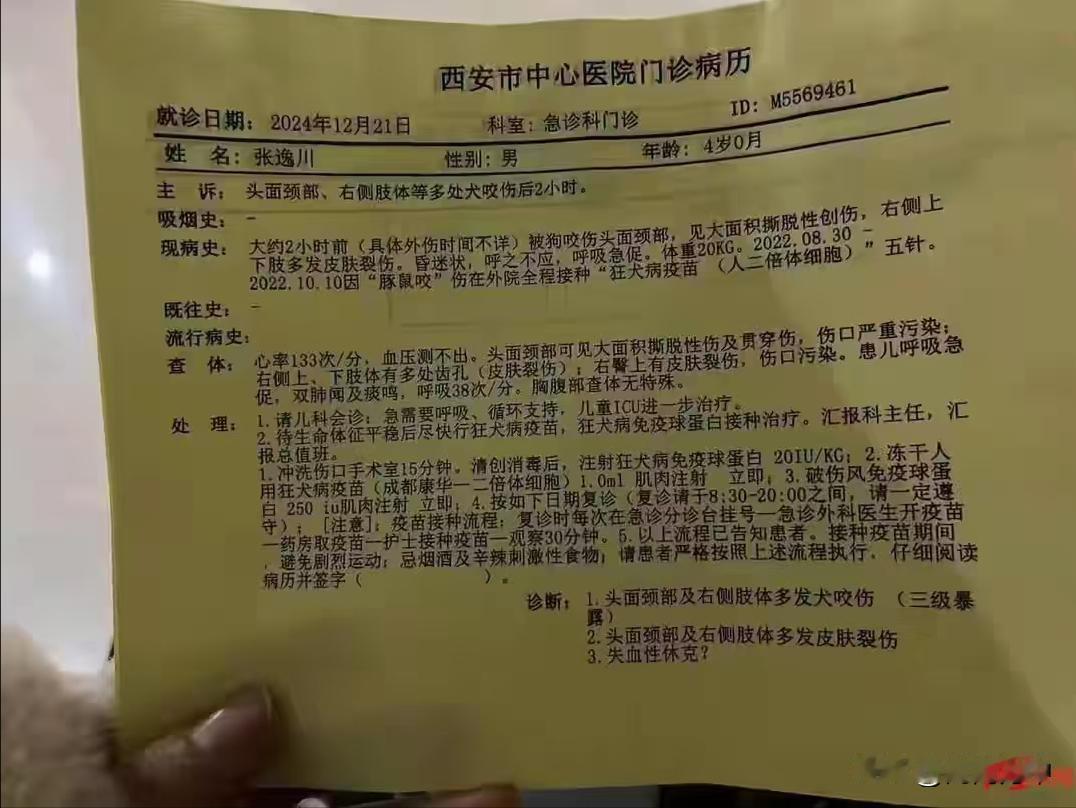 西安市中心医院门诊病历
就诊日期：2024年12月21日 科室：急诊科门诊 ID：M5569461
姓 名：张逸川 性别：男 年龄：4岁0月
主 诉：头面颈部、右侧肢体等多处犬咬伤后2小时。
吸烟史：-
现病史：大约2小时前（具体外伤时间不详）被狗咬伤头面颈部，见大面积撕脱性创伤，右侧上
下肢多发皮肤裂伤。昏迷状，呼之不应，呼吸急促。体重20KG。2022.08.30-
2022.10.10因“豚鼠咬”伤在外院全程接种“狂犬病疫苗（人二倍体细胞）”五针。
既往史：-
流行病史：
查 体：心率133次/分，血压测不出。头面颈部可见大面积撕脱性伤及贯穿伤，伤口严重污染；
右侧上、下肢体有多处齿孔（皮肤裂伤）；右臀上有皮肤裂伤，伤口污染。患儿呼吸急
促，双肺闻及痰鸣，呼吸38次/分。胸腹部查体无特殊。
处 理：1.请儿科会诊：急需要呼吸、循环支持，儿童ICU进一步治疗。
2.待生命体征平稳后尽快行狂犬病疫苗，狂犬病免疫球蛋白接种治疗。汇报科主任，汇
报总值班。
1.冲洗伤口手术室15分钟。清创消毒后，注射狂犬病免疫球蛋白 20IU/KG；2.冻干人
用狂犬病疫苗（成都康华—二倍体细胞）1.0ml 肌肉注射 立即；3.破伤风免疫球蛋
白 250 iu肌肉注射 立即；4.按如下日期复诊（复诊请于8:30-20:00之间，请一定遵
守）；[注意]：疫苗接种流程：复诊时每次在急诊分诊台挂号—急诊外科医生开疫苗
—药房取疫苗—护士接种疫苗—观察30分钟。5.以上流程已告知患者。接种疫苗期间
，避免剧烈运动；忌烟酒及辛辣刺激性食物；请患者严格按照上述流程执行，仔细阅读
病历并签字（ ）。
诊断：1.头面颈部及右侧肢体多发犬咬伤 （三级暴
露）
2.头面颈部及右侧肢体多发皮肤裂伤
3.失血性休克？